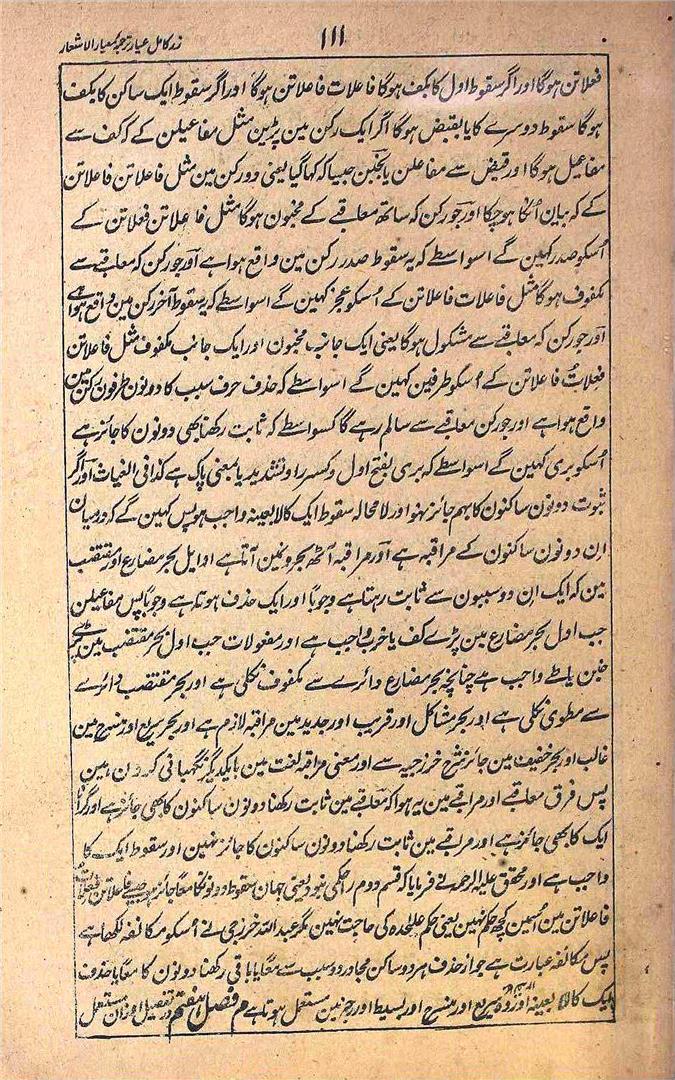 زر کامل عیار ترجمہ معیار الاشعار
۱۱۱
فعلاتن ہوگا اور اگر سقوط اول کا بکف ہوگا فاعلات فاعلاتن ہوگا اور اگر سقوط ایک ساکن کا بکف
ہوگا سقوط دوسرے کا یا بقبض ہوگا اگر ایک رکن مین پڑین مثل مفاعیلن کے کہ کف سے
مفاعیل ہوگا اور قبض سے مفاعلن یا بخبن جیسا کہ کہا گیا یعنی دو رکن مین مثل فاعلاتن فاعلاتن
کے کہ بیان اُسکا ہو چکا اور جو رکن کہ ساتھ معاقبے کے مخبون ہوگا مثل فاعلاتن فعلاتن کے
اُسکو صدر کہین گے اسواسطے کہ یہ سقوط صدر رکن مین واقع ہوا ہے اور جو رکن کہ معاقبے سے
مکفوف ہوگا مثل فاعلات فاعلاتن کے اُسکو عجز کہین گے اسواسطے کہ یہ سقوط آخر رکن مین واقع ہوا ہے
اور جو رکن کہ معاقبے سے مشکول ہوگا یعنی ایک جانب مخبون اور ایک جانب مکفوف مثل فاعلاتن
فعلات فاعلاتن کے اُسکو طرفین کہین گے اسواسطے کہ حذف حرف سبب کا دونون طرفون رکن مین
واقع ہوا ہے اور جو رکن معاقبے سے سالم رہے گا کسواسطے کہ ثابت رکھنا بھی دونون کا جائز ہے
اُسکو بری کہین گے اسواسطے کہ بری بفتح اول و کسر را و تشدید یا بمعنی پاک ہے کذا فی الغیاث اور اگر
ثبوت دونون ساکنون کا بہم جائز نہو اور لا محالہ سقوط ایک کا لا بعینہ واجب ہو پس کہین گے کہ درمیان
اِن دونون ساکنون کے مراقبہ ہے اور مراقبہ آٹھ بحرون مین آتا ہے اوایل بحر مضارع اور مقتضب
مین کہ ایک اِن دو سببون سے ثابت رہتا ہے وجوباً اور ایک حذف ہوتا ہے وجوباً پس مفاعیلن
جب اول بحر مضارع مین پڑے کف یا خرب واجب ہے اور مفعولات جب اول بحر مقتضب مین پڑے
خبن یا طے واجب ہے چنانچہ بحر مضارع دائرے سے مکفوف نکلی ہے اور بحر مقتضب دائرے
سے مطوی نکلی ہے اور بحر مشاکل اور قریب اور جدید مین مراقبہ لازم ہے اور بحر سریع اور منسرح مین
غالب اور بحر خفیف مین جائز شرح خزرجیہ سے اور معنی مراقبہ لغت مین با یکدیگر نگہبانی کردن ہین
پس فرق معاقبے اور مراقبے مین یہ ہوا کہ معاقبے مین ثابت رکھنا دونون ساکنون کا بھی جائز ہے اور گرانا
ایک کا بھی جائز ہے اور مراقبے مین ثابت رکھنا دونون ساکنون کا جائز نہین اور سقوط ایک کا
واجب ہے اور محقق علیہ الرحمہ نے فرمایا کہ قسم دوم را حکمی نبود یعنی جہان سقوط دونونکا معاً جائز ہو جیسے فاعلاتن
فاعلاتن مین اُسمین کچھ حکم نہین یعنی حکم علٰحدہ کی حاجت نہین مگر عبد اللہ خزرجی نے اُسکو مکانفہ لکھا ہے
پس مکانفہ عبارت ہے جواز حذف ہر دو ساکن مجاور دو سبب سے معاً یا باقی رکھنا دونون کا معاً یا حذف
ایک کا لا بعینہ اور وہ سریع اور منسرح اور بسیط اور رجز مین مستعمل ہوتا ہے م فصل ہفتم در تفصیل اوزان مستعمل